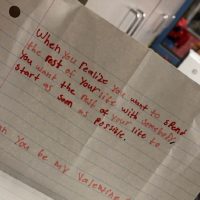 When you realize you want to spend
the rest of your life with somebody,
you want the rest of your life to
start as soon as possible.
you be my Valentine